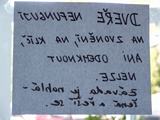 DVEŘE NEFUNGUJÍ
NA ZVONĚNÍ, NA KLÍČ,
ANI ODEMKNOUT
NELZE.
Závada je nahlá-
šená a řeší se.